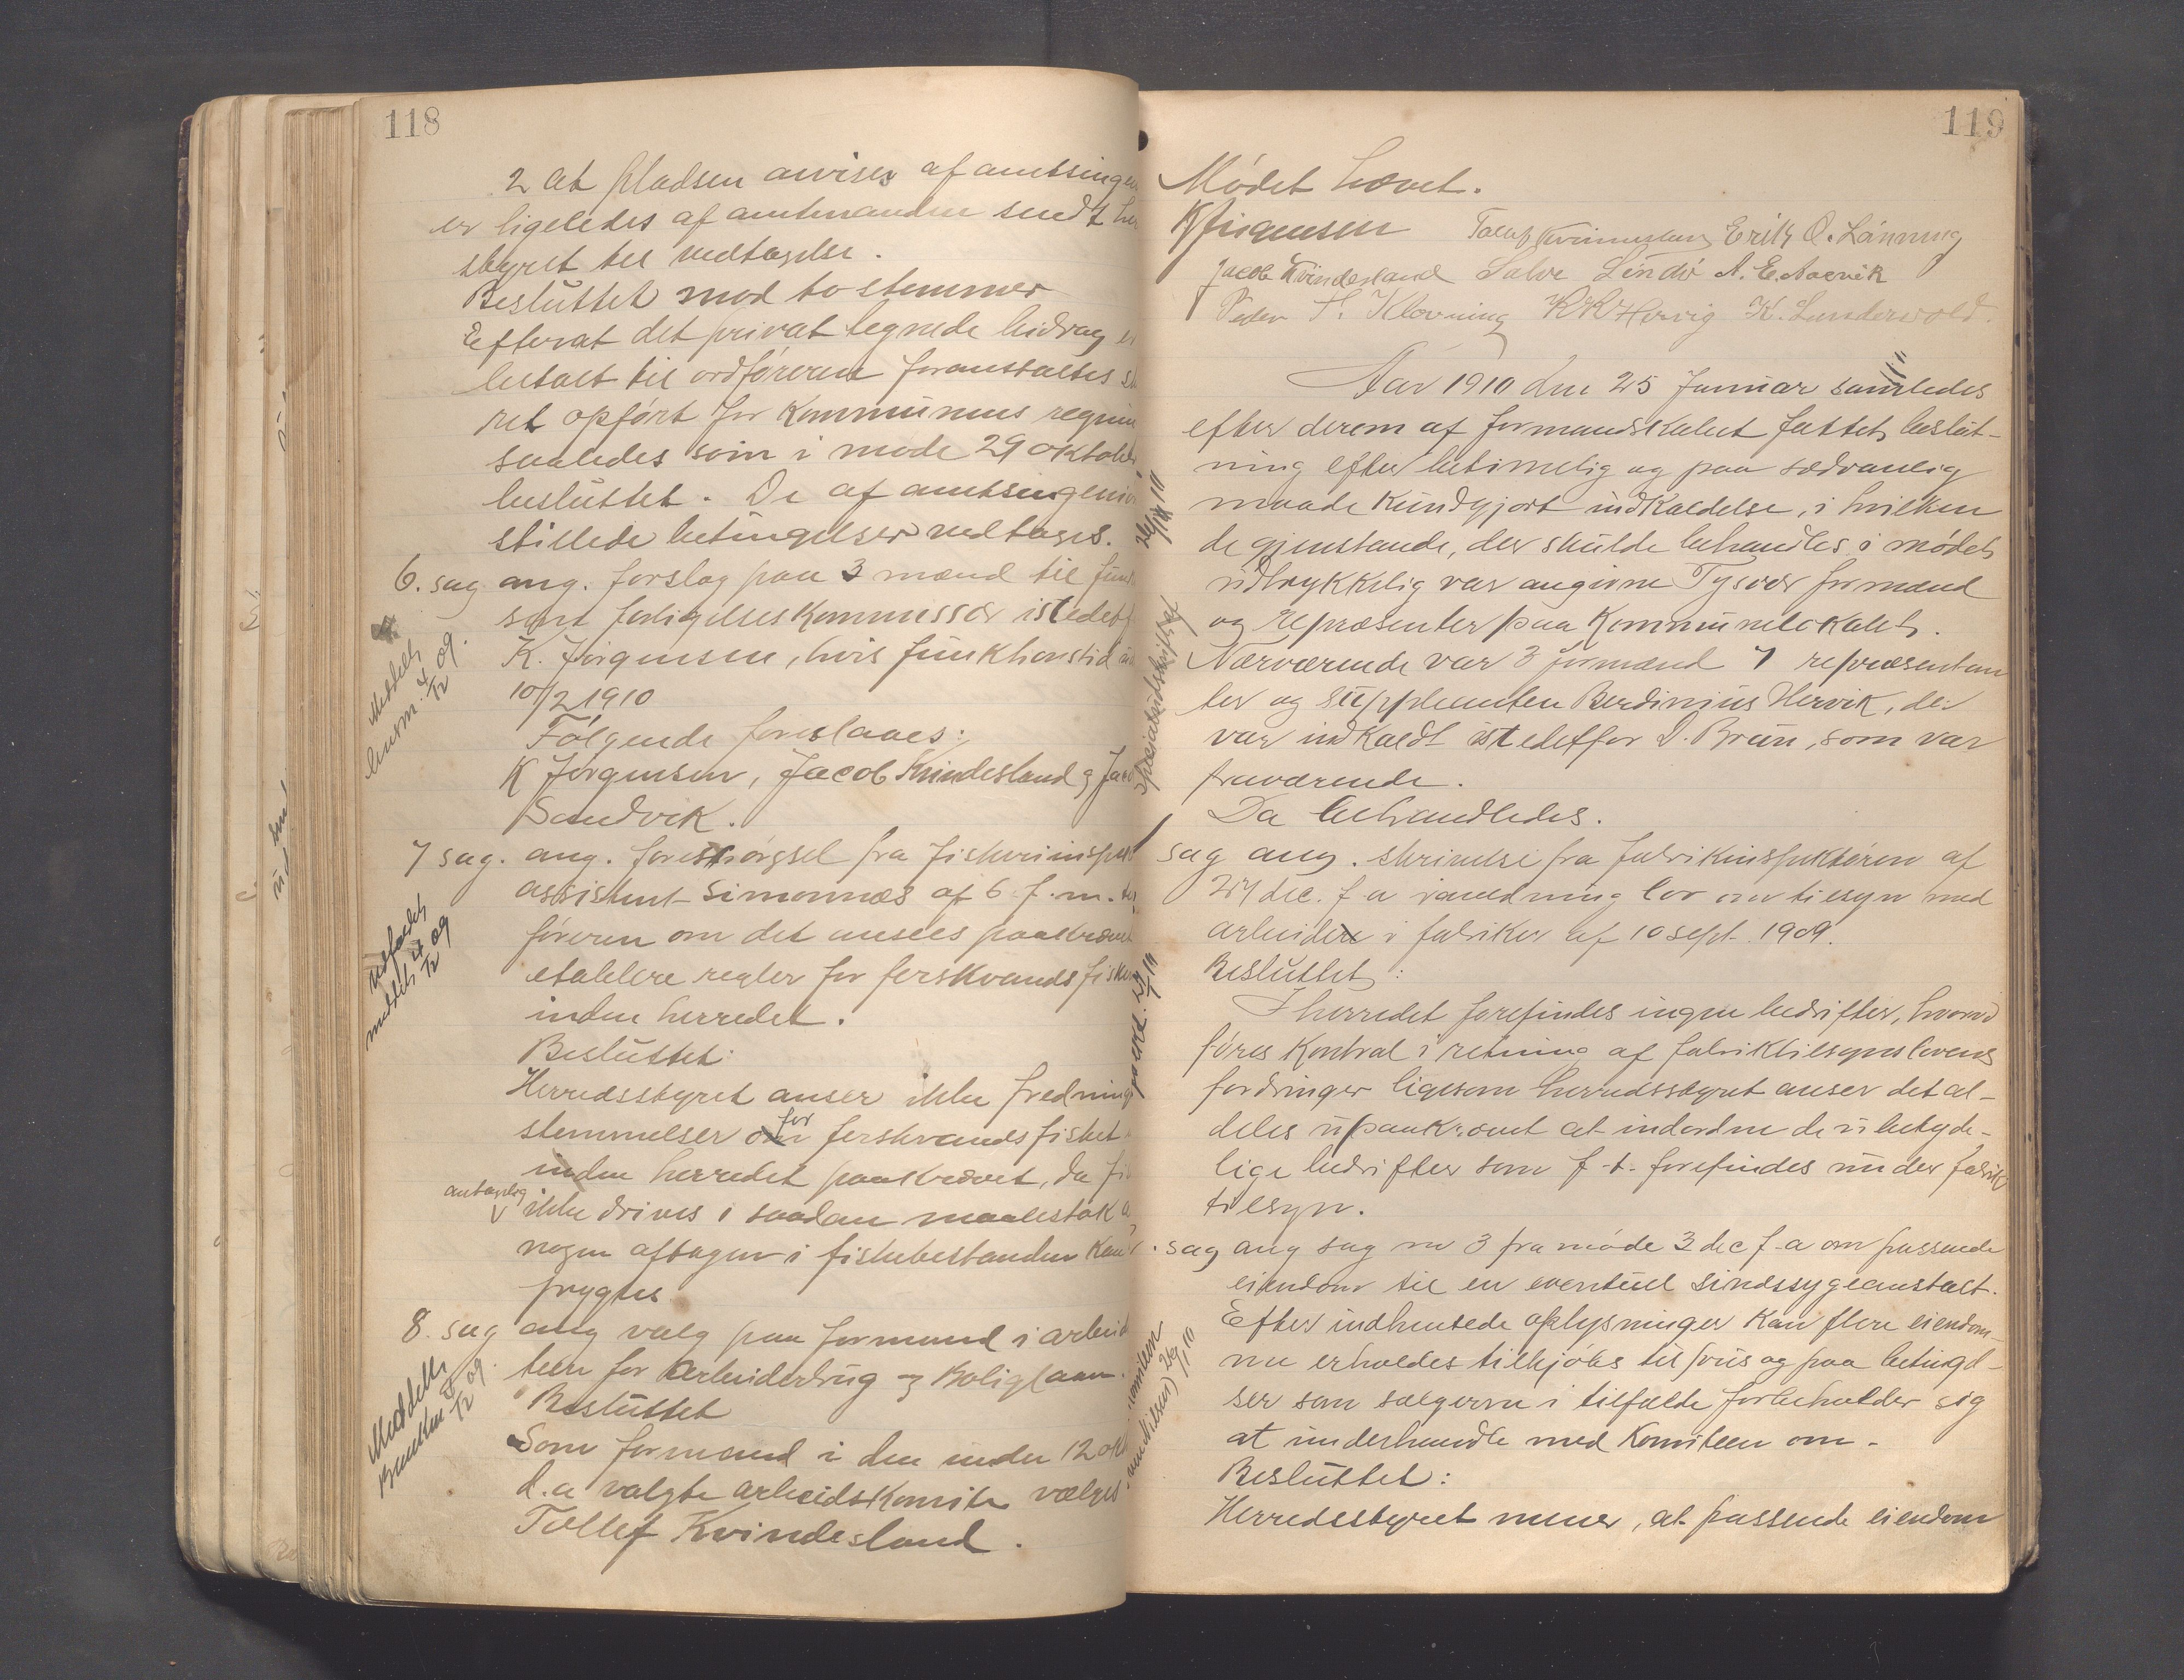 118
2 at pladsen anvises af amtsingen
er ligeledes af amtmanden sendt her
styret til vedtagelse.
Besluttet mod to stemmer
Efterat det privat tegnede bidrag er
betalt til ordføreren foranstaltes
ret opført for kommunens regnin
saaledes som i møde 29 oktober
besluttet. De af amtsingeniør
stillede betingelser vedtages.
6. sag ang. forslag paa 3 mænd til
som forligelseskommissær istedetf
K. Jørgensen, hvis funktionstid
10/2 1910
Følgende foreslaaes:
K Jørgensen, Jacob Kvindesland og Jac
Sandvik.
7 sag. ang. forespørgsel fra fiskeriinspek
assistent Simonnæs af 6 f. m. til
føreren om det ansees paakrævet
etablere regler for ferskvandsfisker
inden herredet.
Besluttet:
Herredsstyret anser ikke frednings
stemmelser for ferskvandsfisket
inden herredet paakrævet, da fi
antagelig
ikke drives i saadan maalestok a
nogen aftagen i fiskebestanden kan
frygtes.
8. sag ang valg paa formand i arbeid
teen for arbeiderbrug og Boliglaan.
Besluttet
Som formand i den under 12 okt
d.a valgte arbeidskomite vælges
Tollef Kvindesland.
Meddelt
lensm. 4/12 09.
Udfærdet
meddelt 4/12 09
Meddelt
Banken 4/12 09.
119
Mødet hævet.
K Jørgensen Tollef Kvindesland Erik O. Lånning
Jacob Kvindesland Salve Lindø A. E. Aarvik
Peder T. Klovning K K Hervig K. Lundervold.
Aar 1910 den 25 Januar samledes
efter derom af formandskabet fattet beslut-
ning efter betimelig og paa sædvanlig
maade kundgjort indkaldelse, i hvilken
de gjenstande, der skulde behandles i mødet
udtrykkelig var angivne Tysvær formænd
og repræsenter paa Kommunelokalet.
Nærværende var 3 formænd 7 repræsentan
ter og suppleanten Berdinius Hervik, der
var indkaldt istedetfor D. Brun, som var
fraværende.
Da behandledes.
sag ang. skrivelse fra fabrikinspektøren af
27 dec. f a i anledning lov om tilsyn med
arbeidere i fabriker af 10 sept. 1909.
Besluttet:
I herredet forefindes ingen bedrifter, hvormed
føres kontrol i retning af fabriktilsynslovens
fordringer ligesom herredsstyret anser det al-
deles upaakrævet at indordne de ubetyde-
lige bedrifter som f-t- forefindes under fabrik
tilsyn.
sag ang sag nr 3 fra møde 3 dec f-a om passende
eiendom til en eventuel sindssygeanstalt.
Efter indhentede oplysninger kan flere eiendom-
me erholdes tilkjøbs til pris og paa betingel-
ser som sælgerne i tilfælde forbeholder sig
at underhandle med komiteen om.
Besluttet:
Herredsstyret mener, at passende eiendom